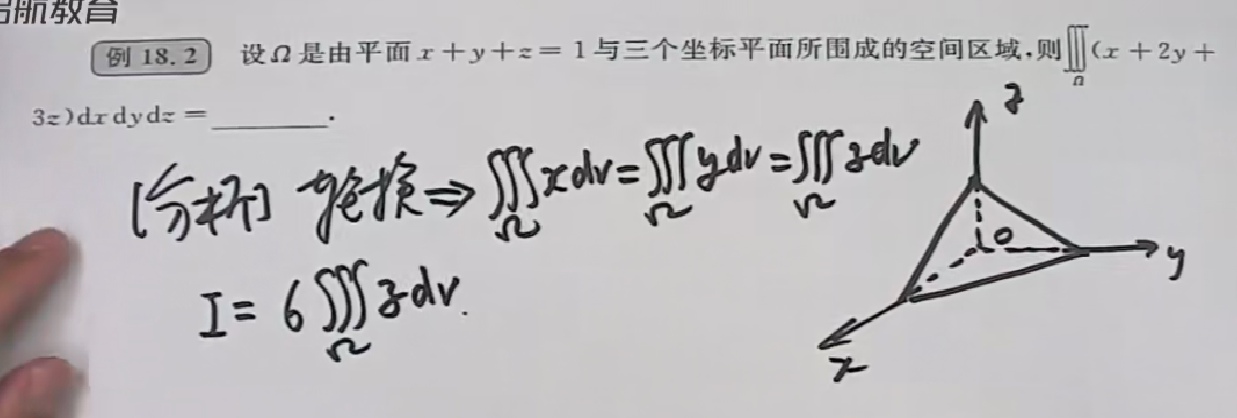 启航教育
例 18.2 设Ω是由平面 x+y+z=1与三个坐标平面所围成的空间区域,则∭_Ω(x+2y+
3z)dxdydz=______.
[分析] 轮换⇒∭_Ω xdv=∭_Ω ydv=∭_Ω zdv
I=6∭_Ω zdv.
z
O
y
x